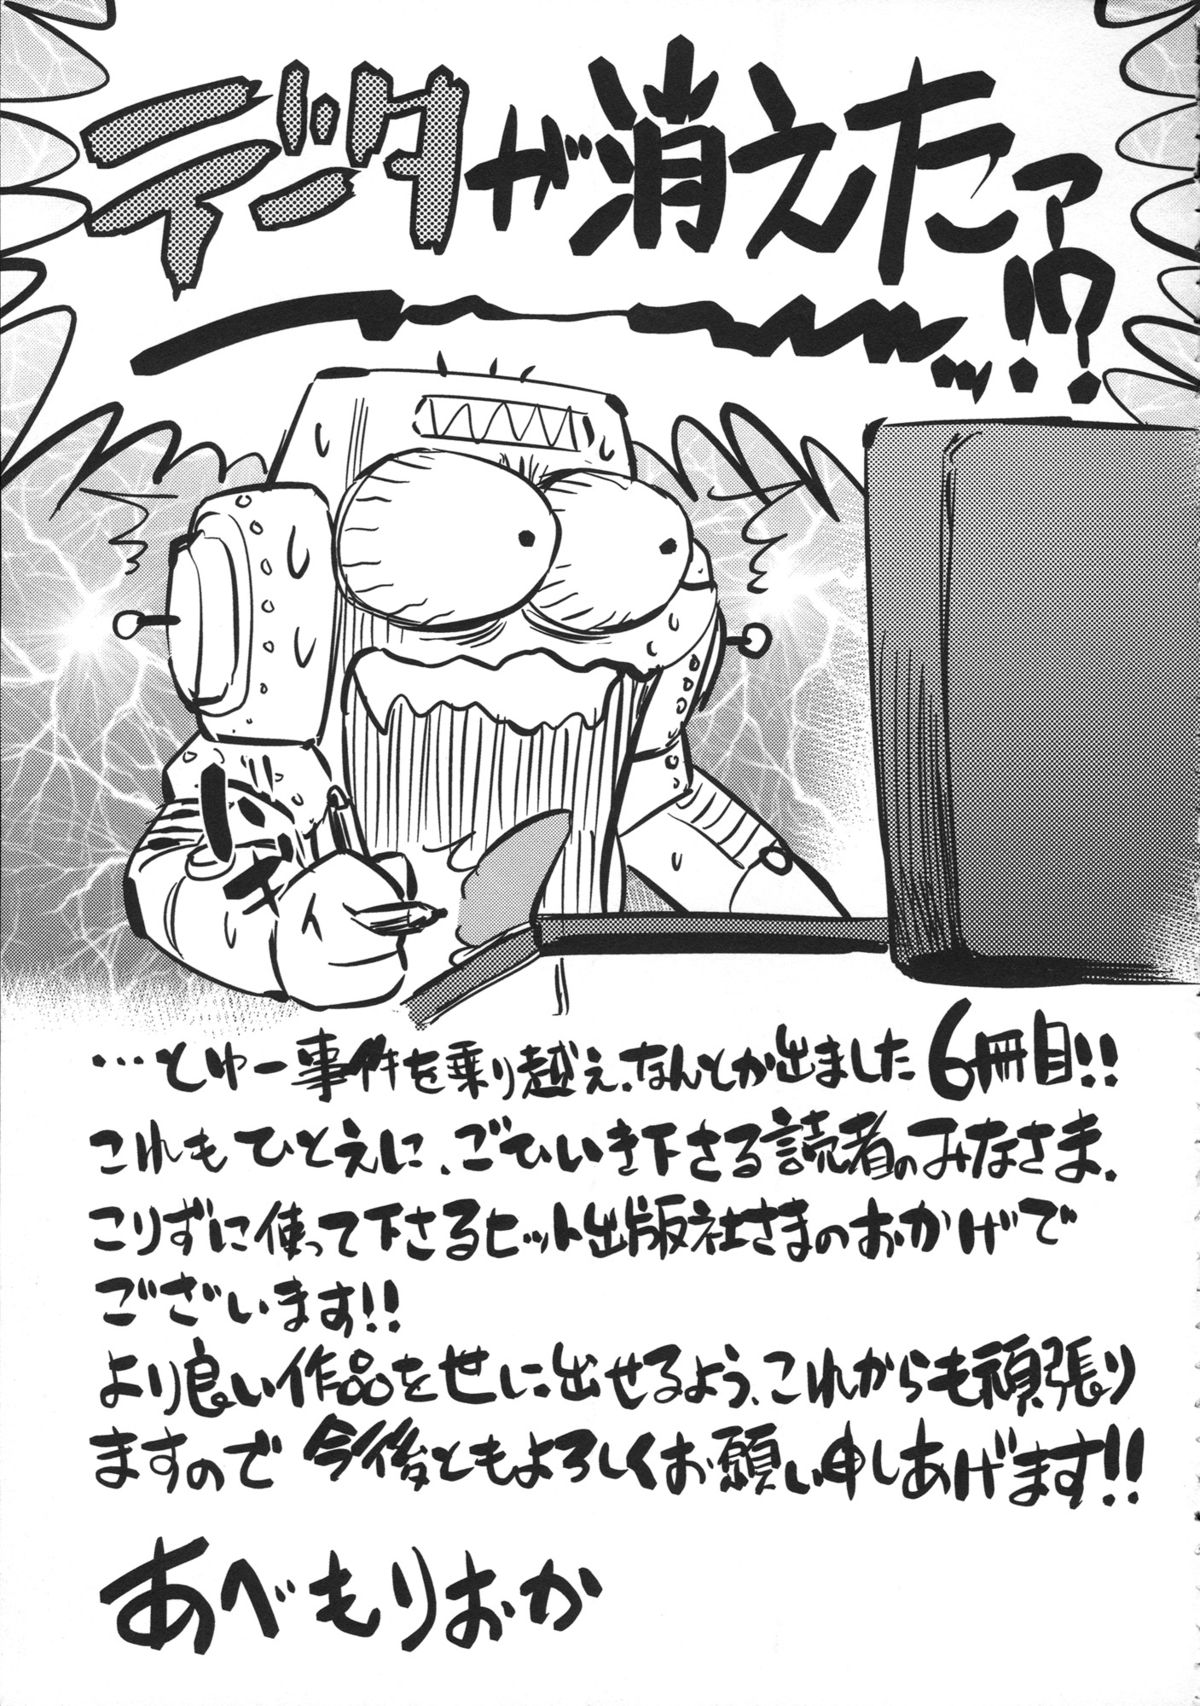 データが消えたァーーッ!!?
…とゆー事件を乗り越え、なんとか出ました6冊目!!
これもひとえに、ごひいき下さる読者のみなさま、
こりずに使って下さるヒット出版社さまのおかげで
ございます!!
より良い作品を世に出せるよう、これからも頑張り
ますので今後ともよろしくお願い申しあげます!!
あべもりおか